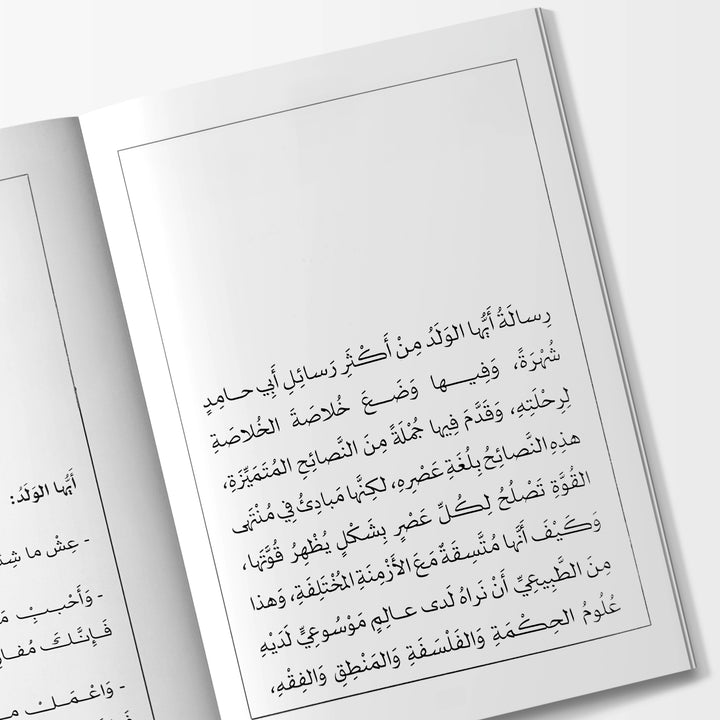 رِسالَةُ أَيُّها الوَلَدُ مِنْ أَكْثَرِ رَسائِلِ أَبِي حامِدٍ
شُهْرَةً، وَفِيها وَضَعَ خُلاصَةَ الخُلاصَةِ
لِرِحْلَتِهِ، وَقَدَّمَ فِيها جُمْلَةً مِنَ النَّصائِحِ المُتَمَيِّزَةِ،
هذِهِ النَّصائِحُ بِلُغَةِ عَصْرِهِ، لكِنَّها مَبادِئُ فِي مُنْتَهى
القُوَّةِ تَصْلُحُ لِكُلِّ عَصْرٍ بِشَكْلٍ يُظْهِرُ قُوَّتَها،
وَكَيْفَ أَنَّها مُتَّسِقَةٌ مَعَ الأَزْمِنَةِ المُخْتَلِفَةِ، وَهذا
مِنَ الطَّبِيعِيِّ أَنْ نَراهُ لَدى عالِمٍ مَوْسُوعِيٍّ لَدَيْهِ
عُلُومُ الحِكْمَةِ وَالفَلْسَفَةِ وَالمَنْطِقِ وَالفِقْهِ،
أَيُّها الوَلَدُ:
- عِشْ ما
- وَأَحْبِبْ
- وَاعْمَلْ